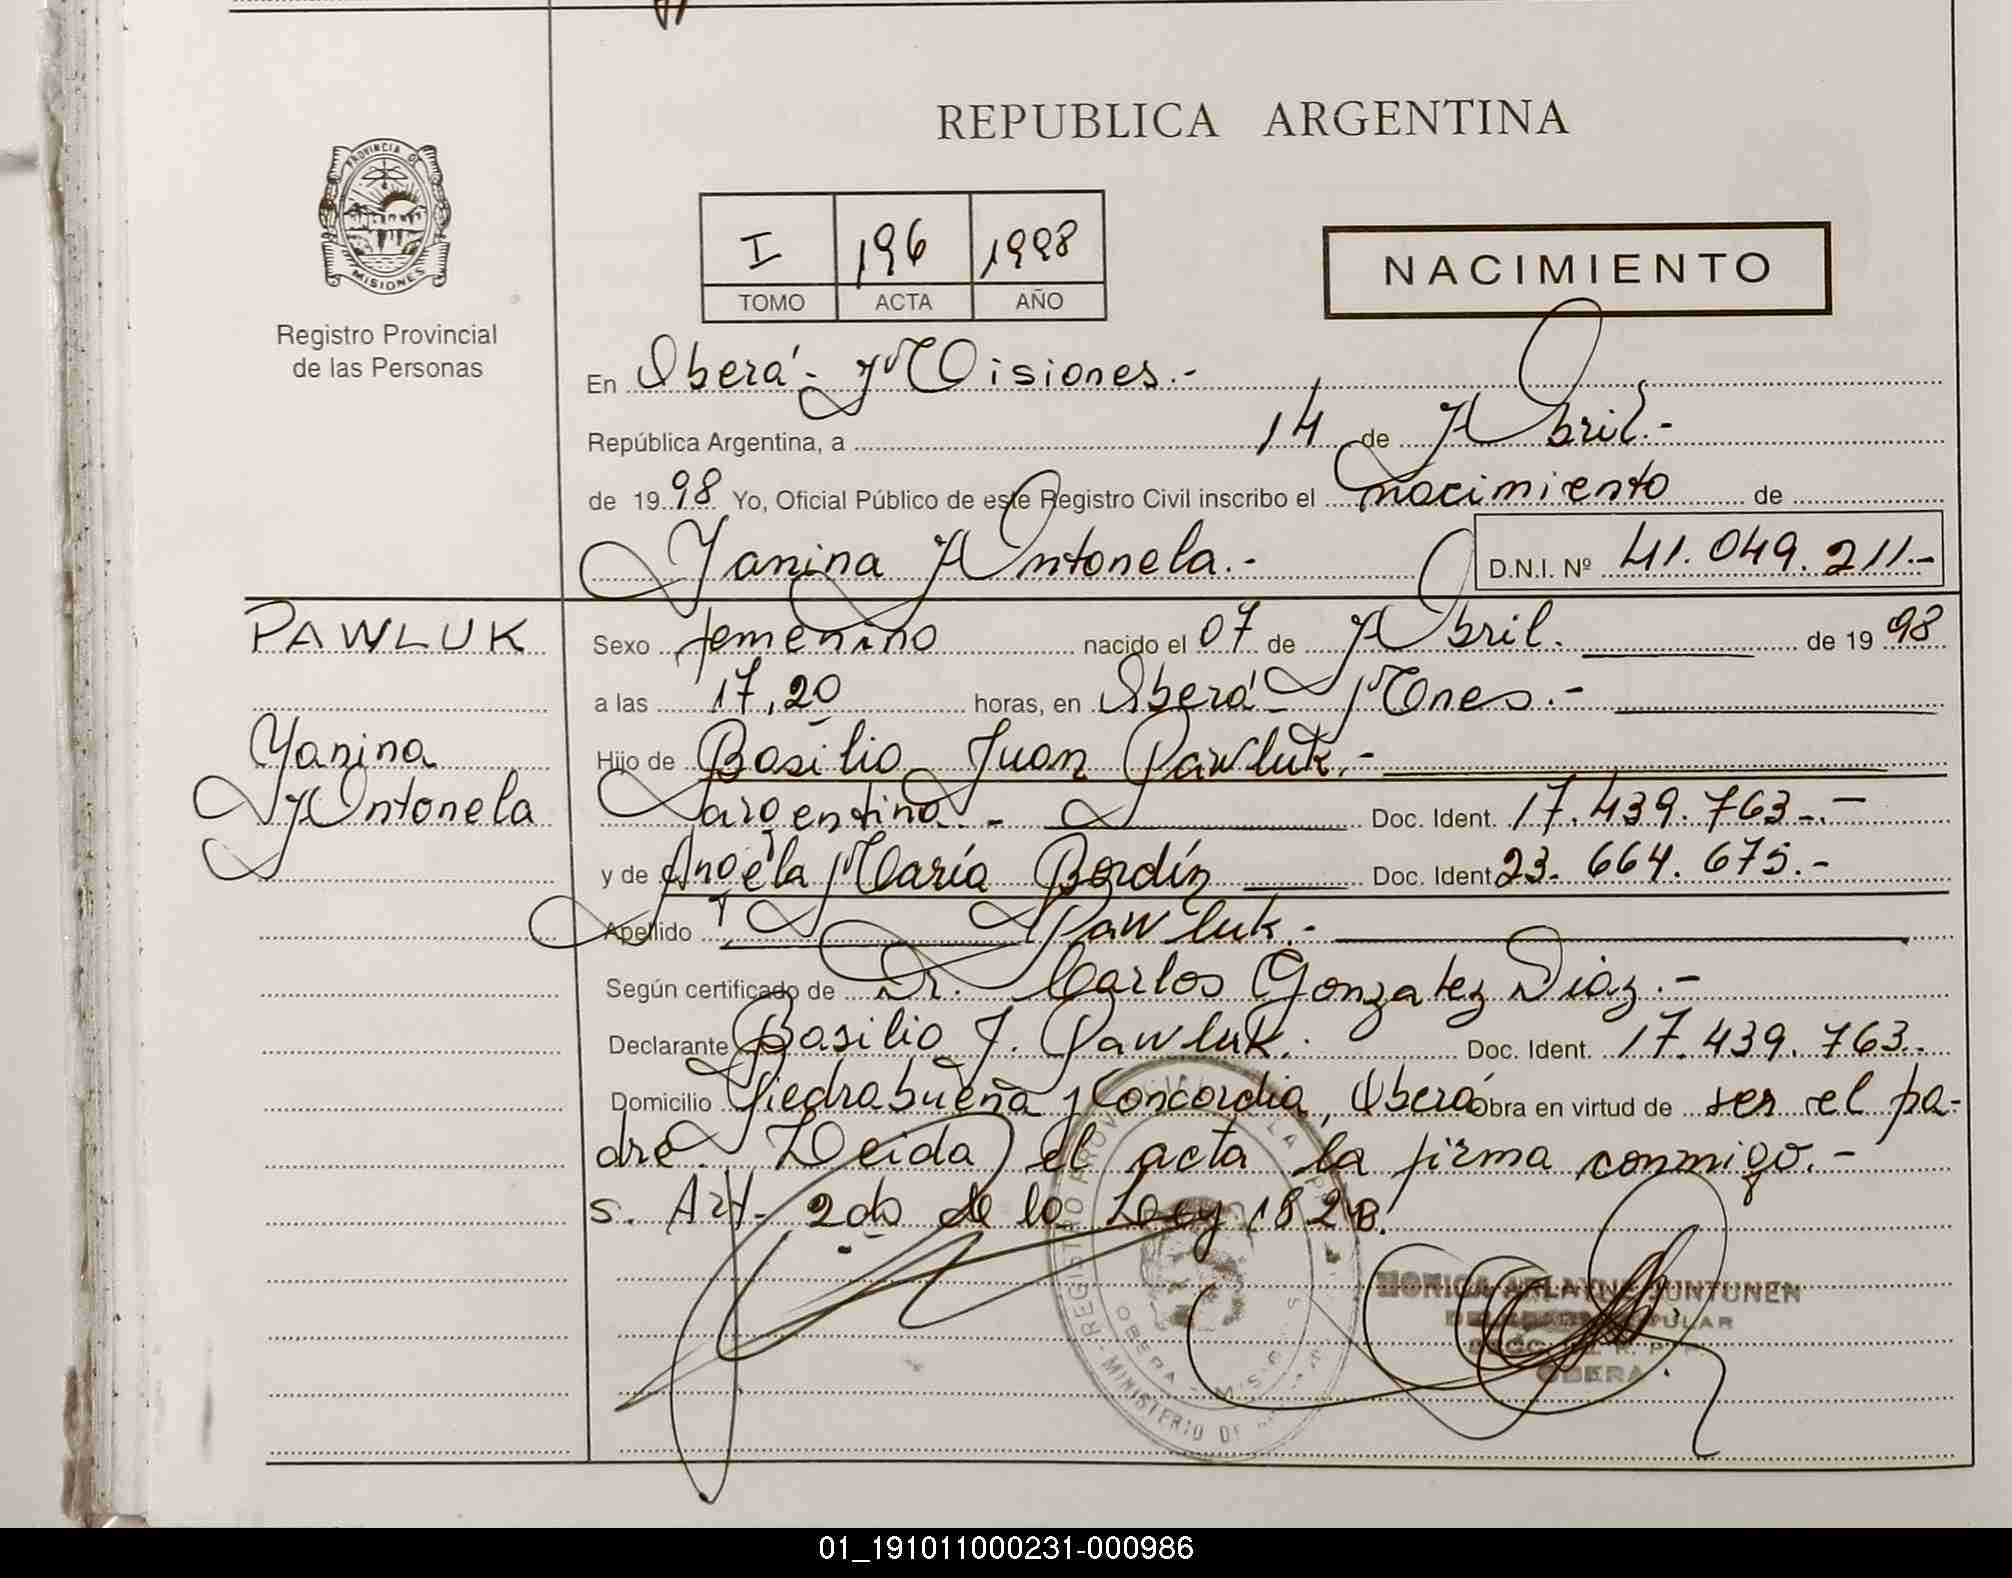 REPUBLICA ARGENTINA
PROVINCIA DE MISIONES
Registro Provincial
de las Personas
I 196 1998
TOMO ACTA AÑO
NACIMIENTO
En Oberá - Misiones.-
República Argentina, a 14 de Abril.-
de 1998 Yo, Oficial Público de este Registro Civil inscribo el nacimiento de
Yanina Antonela.- D.N.I. Nº 41.049.211.-
PAWLUK
Yanina
Antonela
Sexo femenino nacido el 07 de Abril. de 1998
a las 17,20 horas, en Oberá - Mnes.-
Hijo de Basilio Juan Pawluk.-
argentino.- Doc. Ident. 17.439.763.-
y de Angela María Bordín Doc. Ident 23.664.675.-
Apellido Pawluk.-
Según certificado de Dr. Carlos Gonzalez Diaz.-
Declarante Basilio J. Pawluk. Doc. Ident. 17.439.763.
Domicilio Piedrabuena y Concordia, Oberá Obra en virtud de ser el pa-
dre. Leida el acta la firma conmigo.-
s. Art. 2do de la Ley
REGISTRO - MINISTERIO DE
OBERA - MISIONES
MONICA ARLAYNE JUNTUNEN
OBERA
01_191011000231-000986